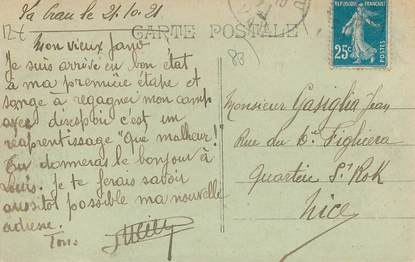 La Crau le 21.10.21
CARTE POSTALE
Mon vieux Jano
Je suis arrivé en bon état
à ma première étape et
songe a regagner mon camp
avec c'est un
réaprentissage "Que malheur!"
Tu donneras le bonjour à
Louis. Je te ferais savoir
aussitot possible ma nouvelle
adresse.
Ton
83
REPUBLIQUE FRANÇAISE
25c
Monsieur Gasiglia Jean
Rue du Dr Fighiera
Quartier St Rok
Nice